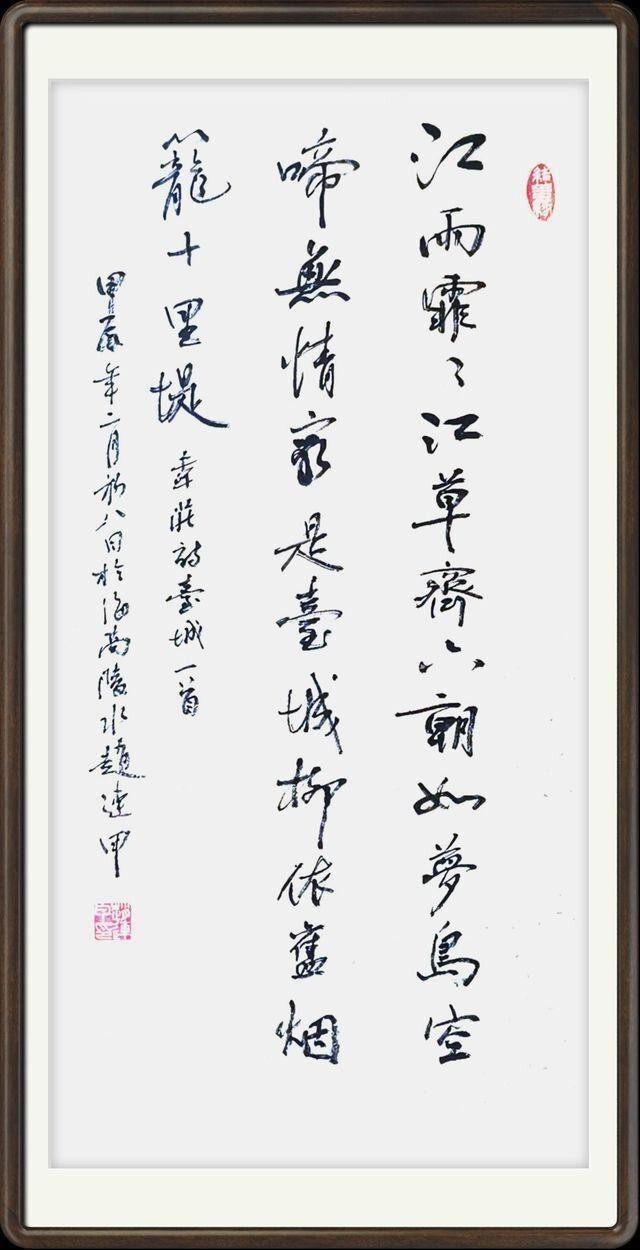 江雨霏々江草齊六朝如夢鳥空
啼無情最是臺城柳依舊烟
籠十里堤 韋莊詩臺城一首
甲辰年二月初八日於海南陵水趙連甲